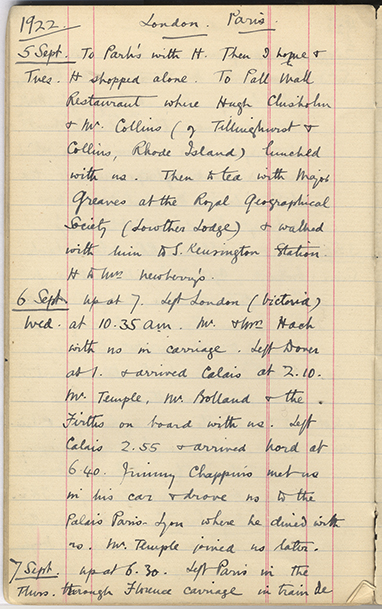 1922 London. Paris.
5 Sept. To Park's with H. Then I home &
Tues. H shopped alone. To Pall Mall
Restaurant where Hugh Chisholm
& Mr. Collins (of Tillinghurst &
Collins, Rhode Island) lunched
with us. Then to tea with Major
Greaves at the Royal Geographical
Society (Lowther Lodge) & walked
with him to S. Kensington Station.
H to Mrs Newberry's.
6 Sept. up at 7. Left London (Victoria)
Wed. at 10.35 am. Mr. & Mrs. Hach
with us in carriage. Left Dover
at 1. & arrived Calais at 2.10.
Mr. Temple, Mr. Bolland & the
Firths on board with us. Left
Calais 2.55 & arrived Nord at
6.40. Jimmy Chappins met us
in his car & drove us to the
Palais Paris-Lyon where he dined with
us. Mr Temple joined us later.
7 Sept. up at 6.30. Left Paris in the
Thurs. through Florence carriage in train de